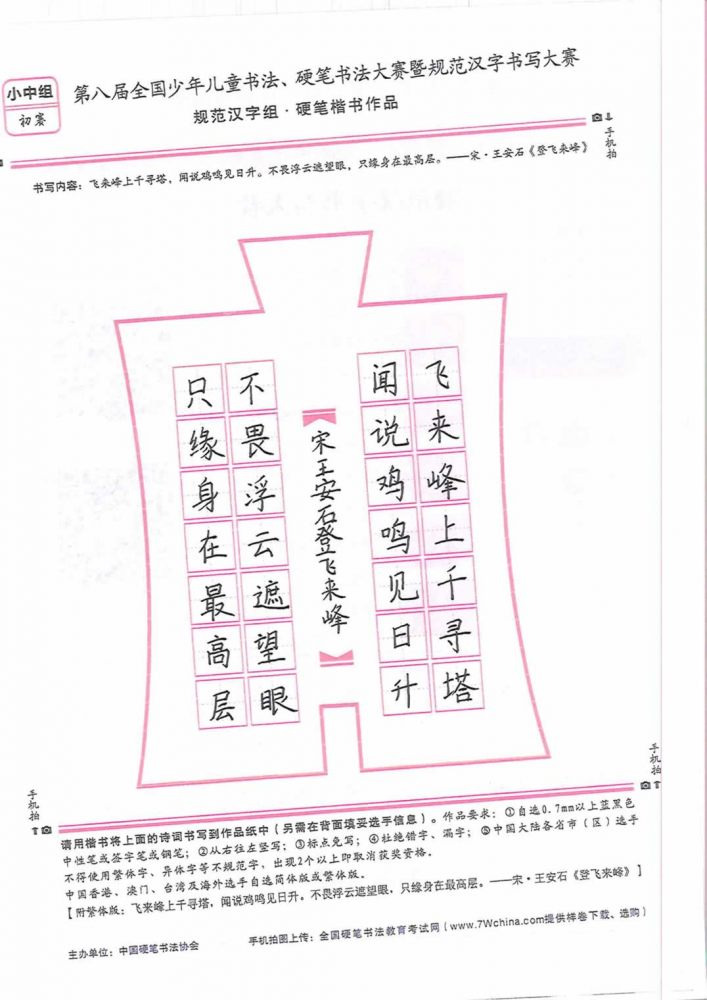 小中组
初赛
第八届全国少年儿童书法、硬笔书法大赛暨规范汉字书写大赛
规范汉字组·硬笔楷书作品
手机拍
书写内容：飞来峰上千寻塔，闻说鸡鸣见日升。不畏浮云遮望眼，只缘身在最高层。——宋·王安石《登飞来峰》
飞来峰上千寻塔
闻说鸡鸣见日升
宋王安石登飞来峰
不畏浮云遮望眼
只缘身在最高层
手机拍
手机拍
请用楷书将上面的诗词书写到作品纸中（另需在背面填妥选手信息）。作品要求：①自选0.7mm以上蓝黑色
中性笔或签字笔或钢笔；②从右往左竖写；③标点免写；④杜绝错字、漏字；⑤中国大陆各省市（区）选手
不得使用繁体字、异体字等不规范字，出现2个以上即取消获奖资格。
中国香港、澳门、台湾及海外选手自选简体版或繁体版。
【附繁体版：飞来峰上千寻塔，闻说鸡鸣见日升。不畏浮云遮望眼，只缘身在最高层。——宋·王安石《登飞来峰》】
主办单位：中国硬笔书法协会
手机拍图上传：全国硬笔书法教育考试网（www.7Wchina.com提供样卷下载、选购）